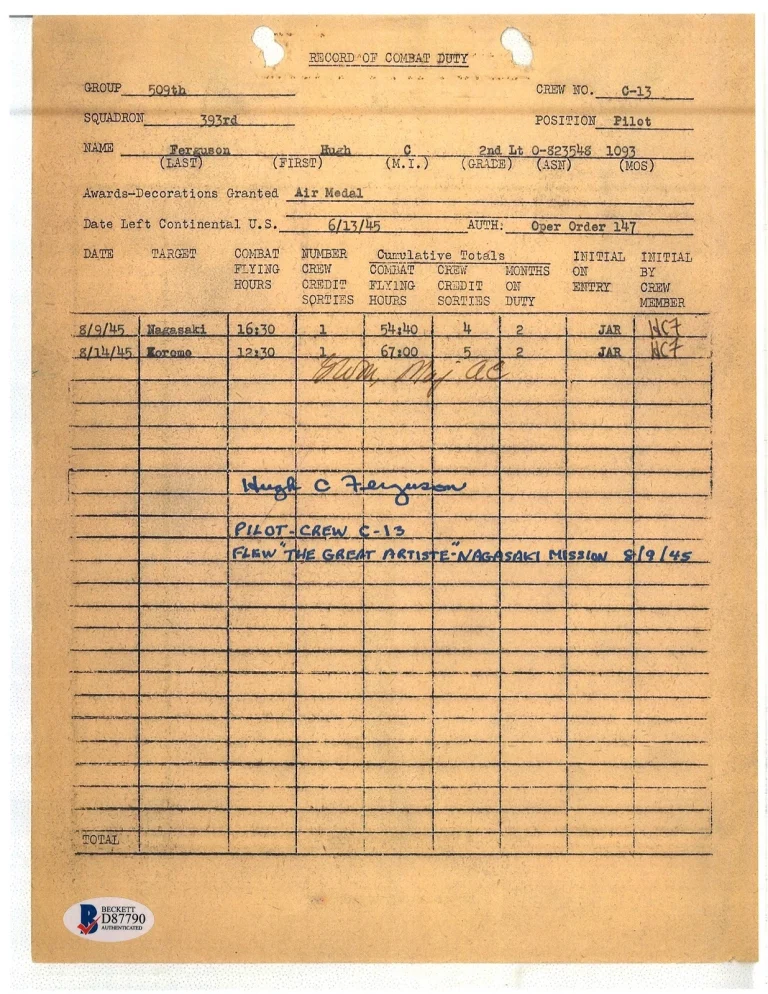 RECORD OF COMBAT DUTY
GROUP 509th CREW NO. C-13
SQUADRON 393rd POSITION Pilot
NAME Ferguson Hugh C 2nd Lt O-823548 1093
(LAST) (FIRST) (M.I.) (GRADE) (ASN) (MOS)
Awards-Decorations Granted Air Medal
Date Left Continental U.S. 6/13/45 AUTH: Oper Order 147
DATE TARGET COMBAT NUMBER Cumulative Totals INITIAL INITIAL
FLYING CREW COMBAT CREW MONTHS ON BY
HOURS CREDIT FLYING CREDIT ON ENTRY CREW
SORTIES HOURS SORTIES DUTY MEMBER
8/9/45 Nagasaki 16:30 1 54:40 4 2 JAR HCF
8/14/45 Koromo 12:30 1 67:00 5 2 JAR HCF
Maj AC
Hugh C Ferguson
PILOT-CREW C-13
FLEW "THE GREAT ARTISTE"-NAGASAKI MISSION 8/9/45
TOTAL
BECKETT
D87790
AUTHENTICATED